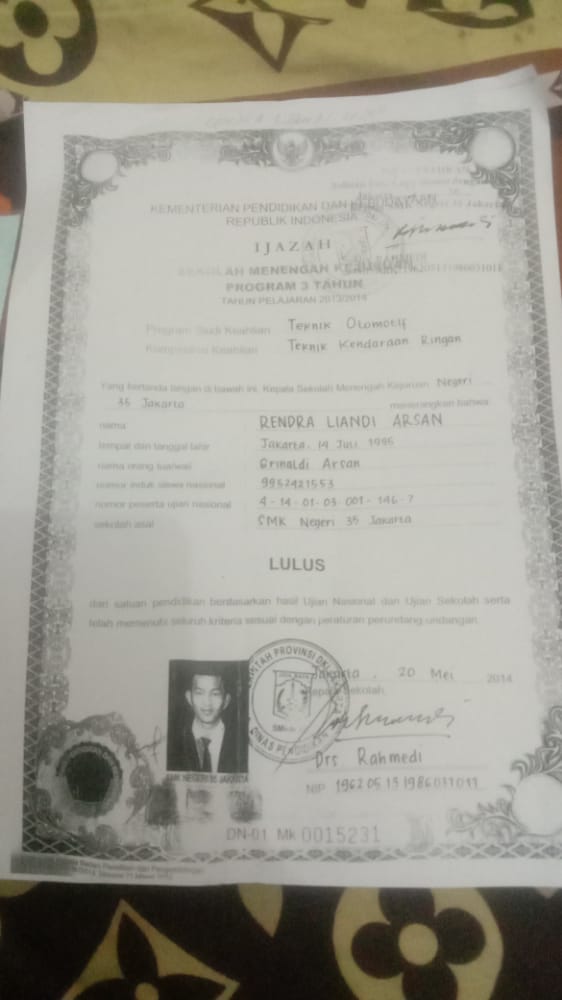 KEMENTERIAN PENDIDIKAN DAN
REPUBLIK INDONESIA
IJAZAH
SEKOLAH MENENGAH KEJURUAN
PROGRAM 3 TAHUN
TAHUN PELAJARAN 2013/2014
Program Studi Keahlian Teknik Otomotif
Kompetensi Keahlian Teknik Kendaraan Ringan
Yang bertanda tangan di bawah ini, Kepala Sekolah Menengah Kejuruan Negeri
35 Jakarta menerangkan bahwa
nama RENDRA LIANDI ARSAN
tempat dan tanggal lahir Jakarta, 14 Juli 1995
nama orang tua/wali Grinaldi Arsan
nomor induk siswa nasional 9952421553
nomor peserta ujian nasional 4-14-01-03-001-146-7
sekolah asal SMK Negeri 35 Jakarta
LULUS
dari satuan pendidikan berdasarkan hasil Ujian Nasional dan Ujian Sekolah serta
telah memenuhi seluruh kriteria sesuai dengan peraturan perundang-undangan
Jakarta, 20 Mei 2014
Kepala Sekolah,
Drs Rahmedi
NIP 196205151986031011
SMK NEGERI 35 JAKARTA
DN-01 Mk 0015231